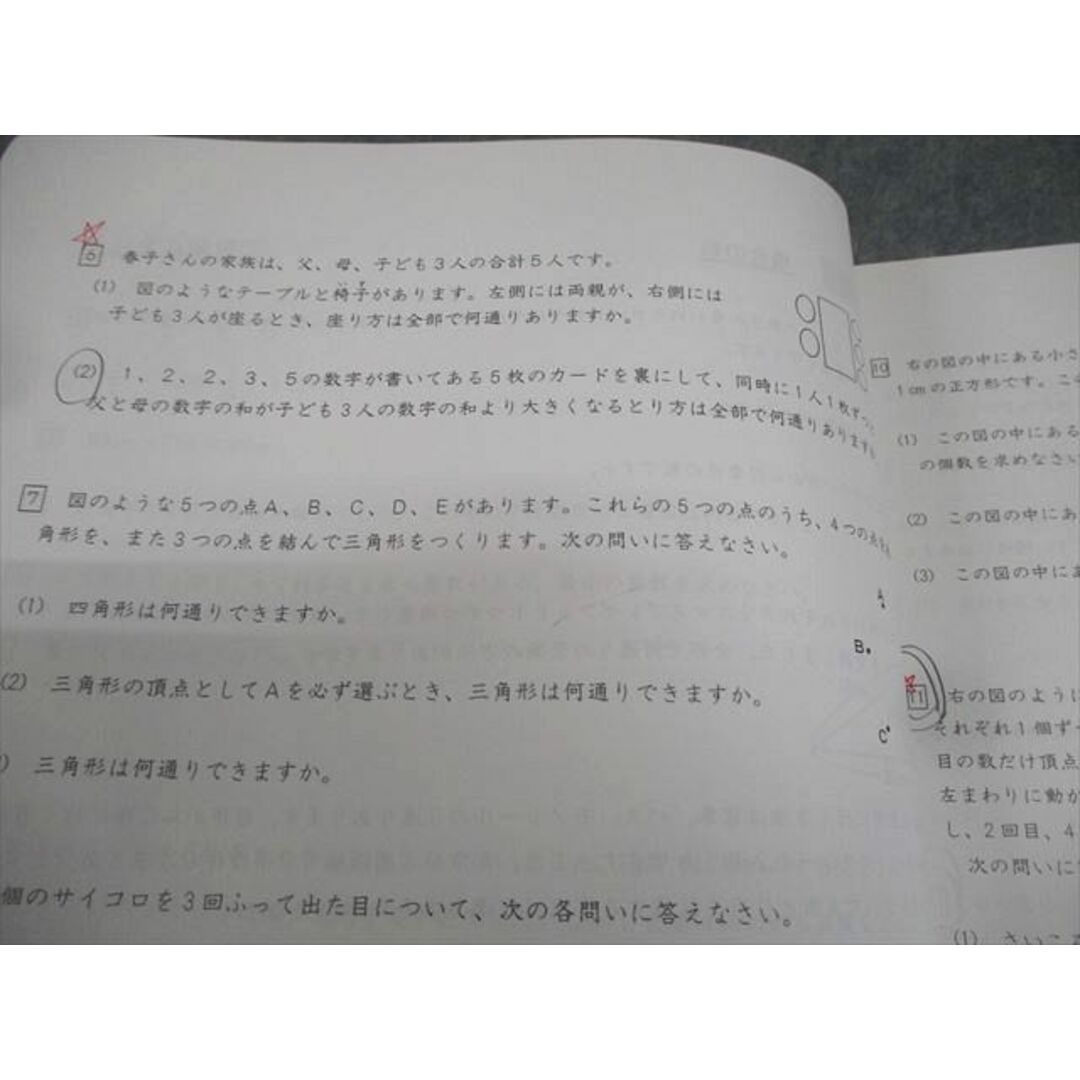 6 春子さんの家族は、父、母、子ども3人の合計5人です。
(1) 図のようなテーブルと椅子があります。左側には両親が、右側には
子ども3人が座るとき、座り方は全部で何通りありますか。
(2) 1、2、2、3、5の数字が書いてある5枚のカードを裏にして、同時に1人1枚ずつ
父と母の数字の和が子ども3人の数字の和より大きくなるとり方は全部で何通りあります
7 図のような5つの点A、B、C、D、Eがあります。これらの5つの点のうち、4つの点を
角形を、また3つの点を結んで三角形をつくります。次の問いに答えなさい。
(1) 四角形は何通りできますか。
(2) 三角形の頂点としてAを必ず選ぶとき、三角形は何通りできますか。
) 三角形は何通りできますか。
個のサイコロを3回ふって出た目について、次の各問いに答えなさい。
A
B
C
10 右の図の中にある小さ
1cmの正方形です。この
(1) この図の中にある
の個数を求めなさい
(2) この図の中にあ
(3) この図の中にあ
11 右の図のように
それぞれ1個ず
目の数だけ頂点
左まわりに動か
し、2回目、4
次の問いに
(1) さいこ